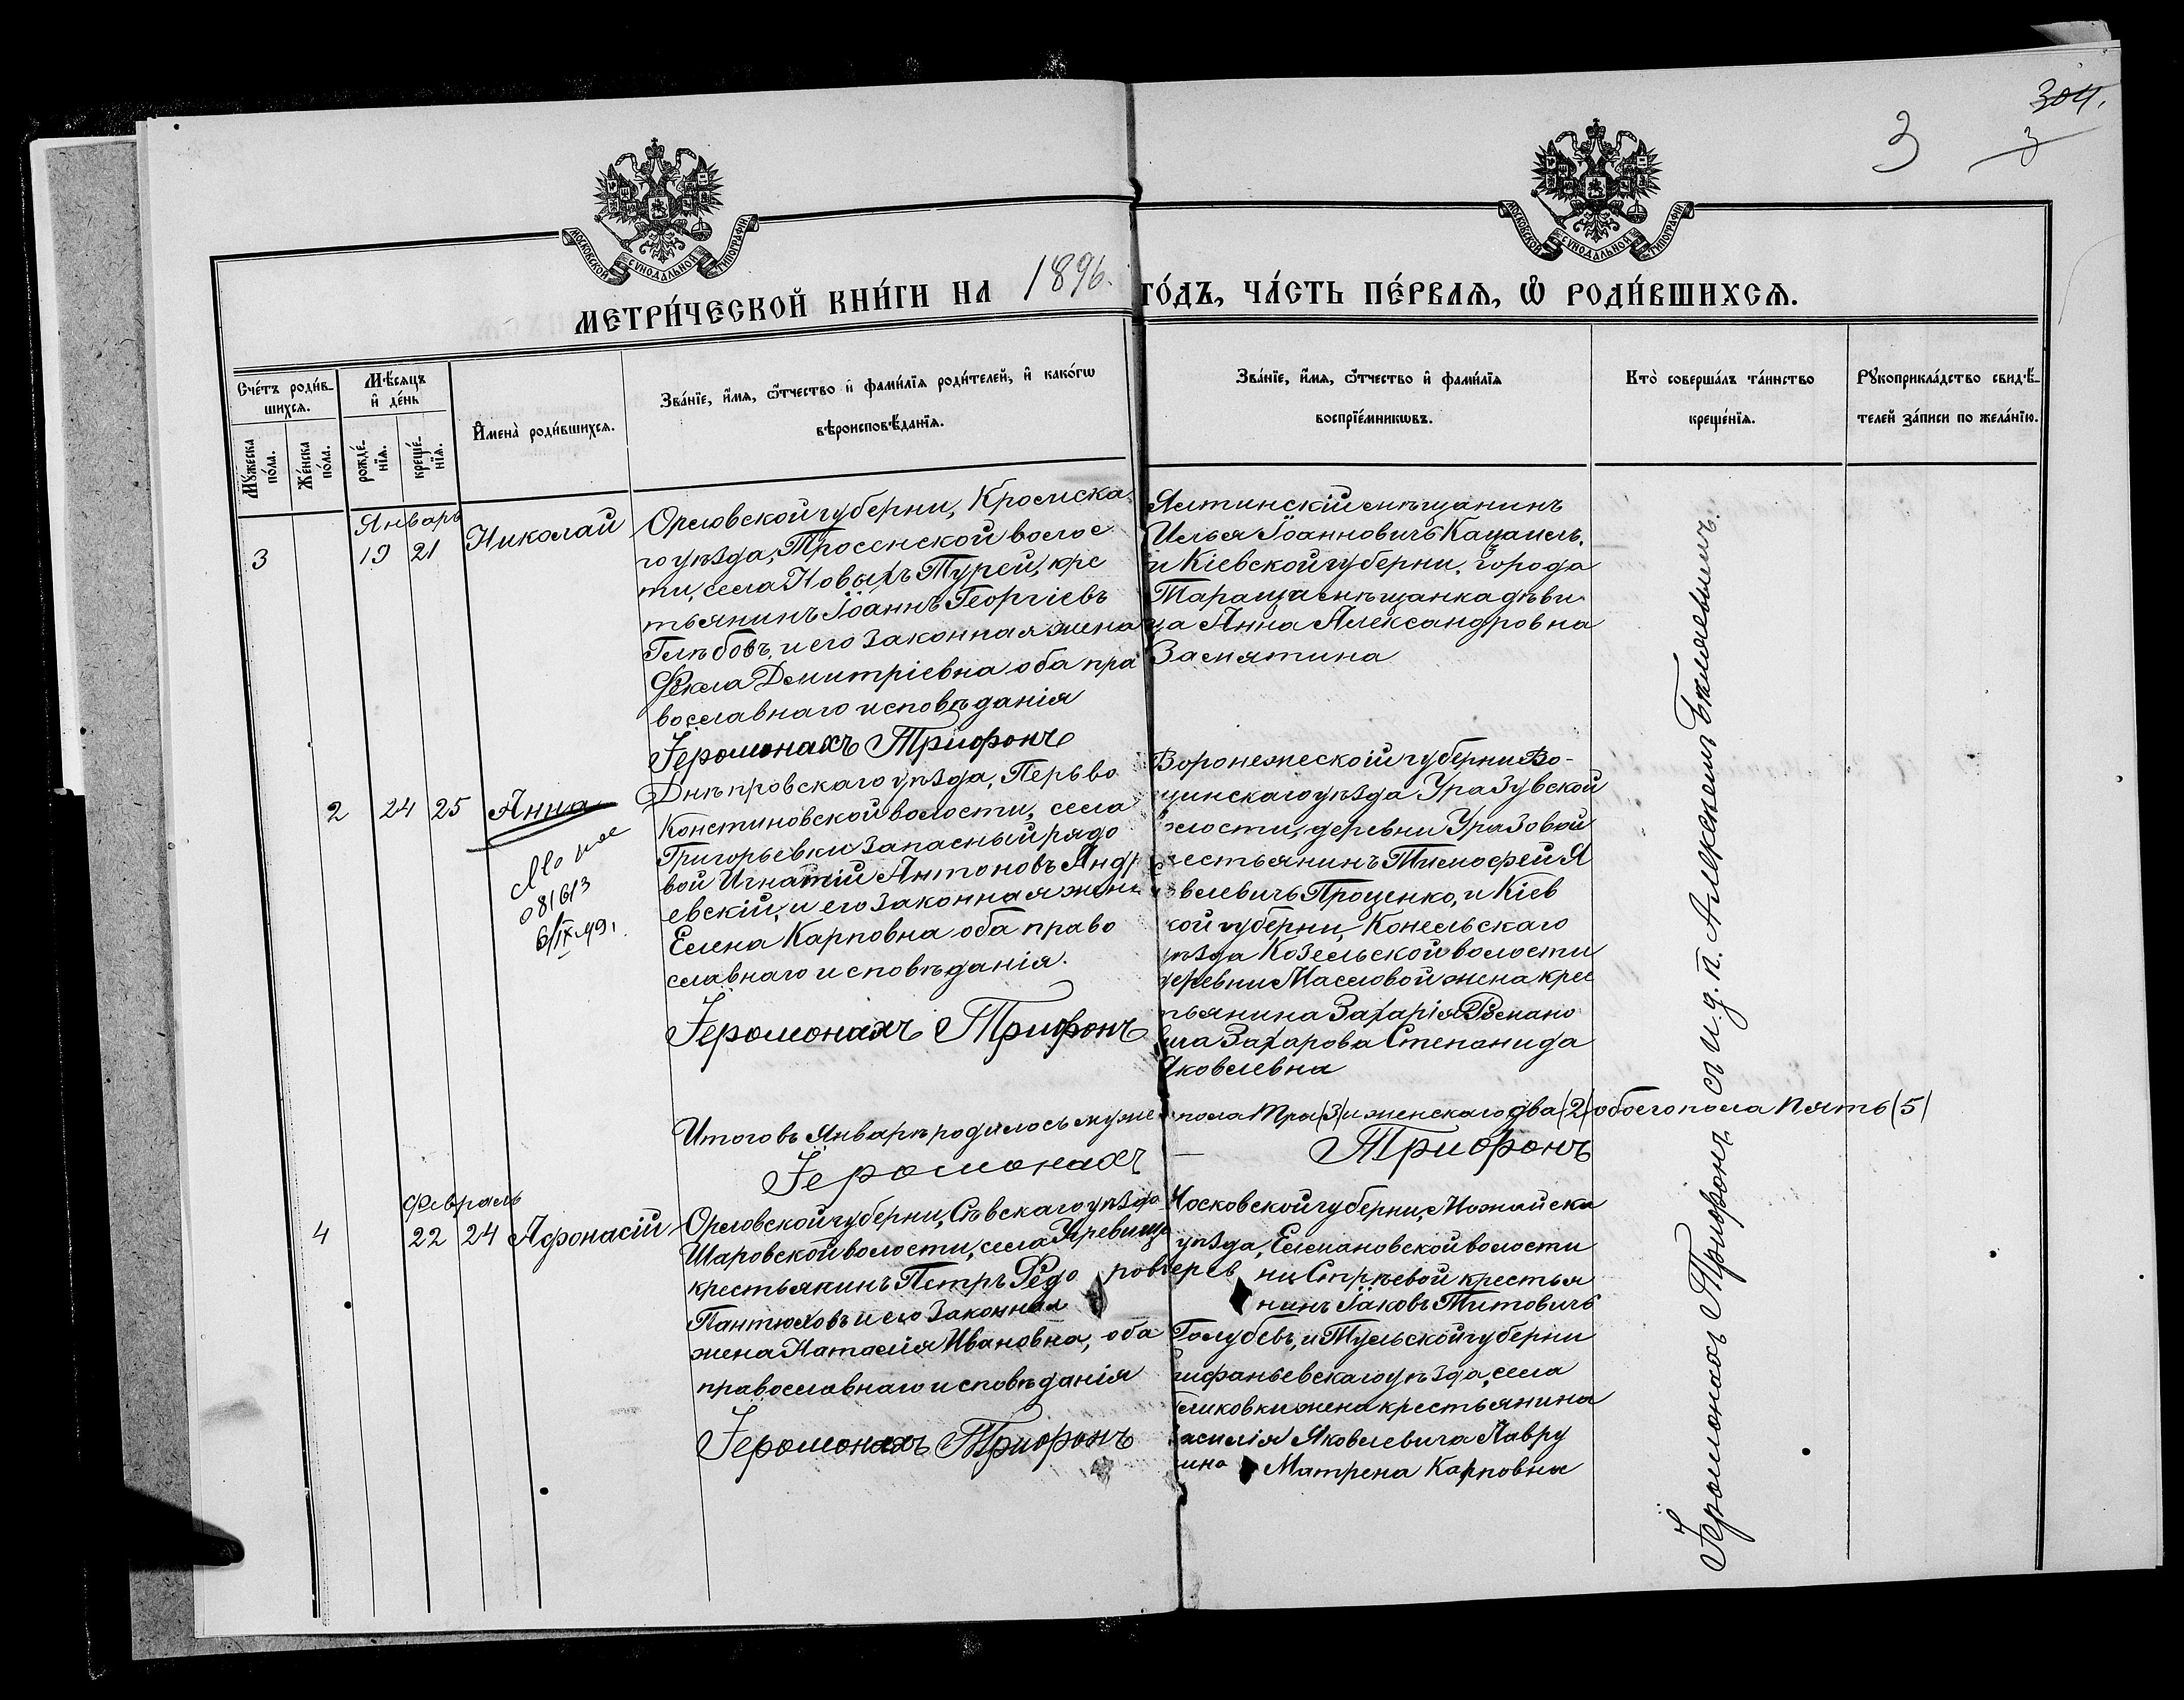 304.
3
3
МОСКОВСКОЙ СУНОДАЛЬНОЙ ТИПОГРАФІИ
МОСКОВСКОЙ СУНОДАЛЬНОЙ ТИПОГРАФІИ
МЕТРИ́ЧЕСКОЙ КНИ́ГИ НА 1896. ГО́ДЪ, ЧА́СТЬ ПЕ́РВАЯ, Ѡ РОДИ́ВШИХСЯ.
Сче́тъ роди́вшихся.
Му́жеска по́ла.
Же́нска по́ла.
Мѣ́сяцъ и҆ де́нь
рожде́нїя.
креще́нїя.
И҆мена̀ роди́вшихся.
Зва́нїе, и҆́мя, ѻ҆́тчество и҆ фами́лїя роди́телей, и҆ како́гѡ
вѣроисповѣ́данїя.
Зва́нїе, и҆́мя, ѻ҆́тчество и҆ фами́лїя
воспрїе́мникѡвъ.
Кто̀ соверша́лъ та́инство
креще́нїя.
Рꙋкоприкла́дство свидѣ́-
телей за́писи по жела́нїю.
Январь
3 19 21 Николай
Орловской губерни, Кромска
го уѣзда, Тросенской волос
ти, села Новыхъ Турей, кре
стьянинъ Іоаннъ Георгіевъ
Глѣбовъ, и его законная жена
Фекла Димитріевна оба пра
вославнаго исповѣданія
Іеромонахъ Трифонъ
Ялтинскій мѣщанинъ
Илья Іоанновичъ Кацапель,
и Кіевской губерни, города
Тараща мѣщанка дѣви
ца Анна Александровна
Замятина
2 24 25 Анна
081613
6/IX-49.
Днѣпровскаго уѣзда, Перьво
Констиновской волости, села
Григорьевки запасный рядо
вой Игнатій Антоновъ Андр
евскій, и его законная жена
Елена Карповна оба право
славнаго исповѣданія.
Іеромонахъ Трифонъ
Воронежеской губерни Во-
цинскаго уѣзда Уразувской
олости, деревни Уразовой
рестьянинъ Тимофей Я
овлевичъ Проценко, и Кіев
кой губерни, Конельскаго
уѣзда Козельской волости
деревни Масловой жена крес
тьянина Захарія Романо
вича Захарова Степанида
Яковлевна
Итого въ Январѣ родилось муже пола три (3) и женскаго два (2) обоего пола пять (5)
Іеромонахъ — Трифонъ
Февраль
4 22 24 Афонасій
Орловской губерни, Сѣвскаго уѣзда
Шаровской волости, села Угревища
крестьянинъ Петръ Федо ровъ
Пантюховъ и его законная
жена Наталія Ивановна, оба
православнаго исповѣданія
Іеромонахъ Трифонъ
Московской губерни, Можайска
уѣзда, Елмановской волости
дерев ни Стрѣевой крестья
нинъ Іаковъ Титовичъ
Голубевъ, и Тульской губерни
пифаньевскаго уѣзда, села
еликовки жена крестьянина
асилія Яковлевича Лавру
ина Матрена Карповна
Іеромонахъ Трифонъ съ и. д. п. Алексѣемъ Бѣляевымъ.